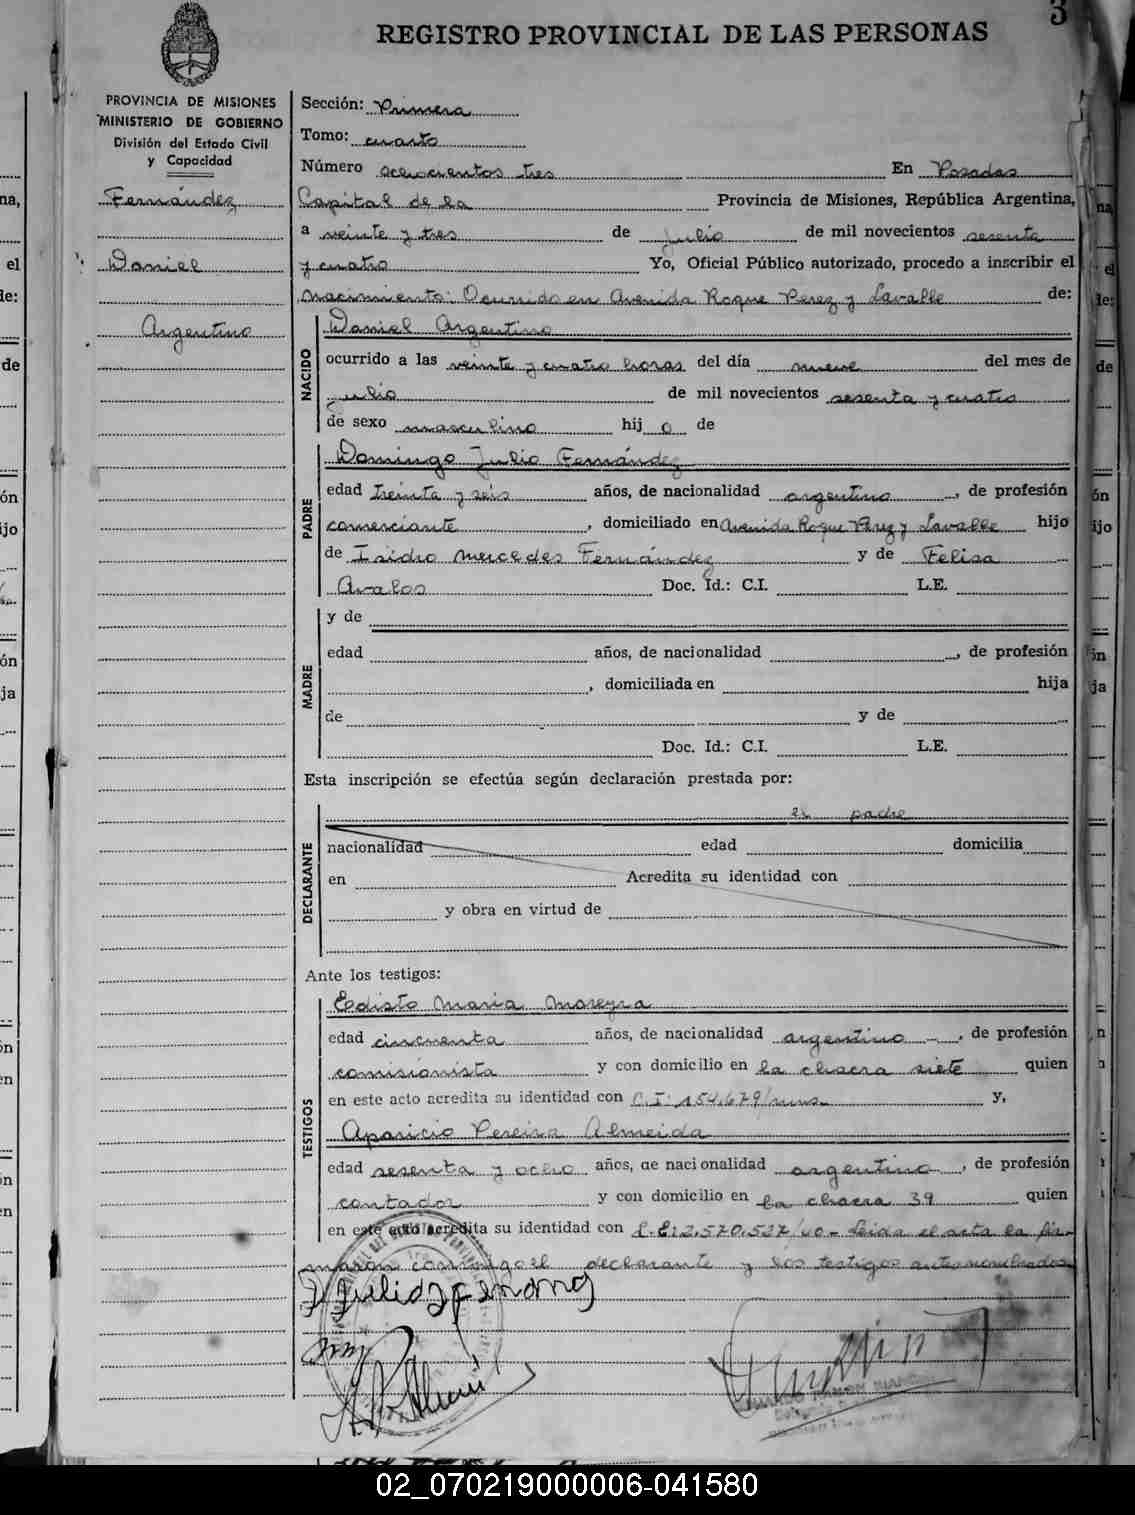 3
REGISTRO PROVINCIAL DE LAS PERSONAS
PROVINCIA DE MISIONES
MINISTERIO DE GOBIERNO
División del Estado Civil
y Capacidad
Fernández
Daniel
Argentino
Sección: Primera
Tomo: cuarto
Número ochocientos tres En Posadas
Capital de la Provincia de Misiones, República Argentina,
a veinte y tres de Julio de mil novecientos sesenta
y cuatro Yo, Oficial Público autorizado, procedo a inscribir el
nacimiento: Ocurrido en Avenida Roque Perez y Lavalle de:
NACIDO
Daniel Argentino
ocurrido a las veinte y cuatro horas del día nueve del mes de
julio de mil novecientos sesenta y cuatro
de sexo masculino hij o de
PADRE
Domingo Julio Fernández
edad treinta y seis años, de nacionalidad argentino, de profesión
comerciante, domiciliado en Avenida Roque Perez y Lavalle hijo
de Isidro Mercedes Fernández y de Felisa
Avalos Doc. Id.: C.I. L.E.
MADRE
y de
edad años, de nacionalidad , de profesión
, domiciliada en hija
de y de
Doc. Id.: C.I. L.E.
Esta inscripción se efectúa según declaración prestada por:
DECLARANTE
el padre
nacionalidad edad domicilia
en Acredita su identidad con
y obra en virtud de
Ante los testigos:
TESTIGOS
Edisto Maria Moreyra
edad cincuenta años, de nacionalidad argentino, de profesión
comisionista y con domicilio en la chacra siete quien
en este acto acredita su identidad con C.I: 154.679/mns. y,
Aparicio Pereira Almeida
edad sesenta y ocho años, de nacionalidad argentino, de profesión
contador y con domicilio en la chacra 39 quien
en este acto acredita su identidad con L.E: 2.570.527/60 - Leida el acta la fir-
maron conmigo el declarante y los testigos antesnombrados
02_070219000006-041580